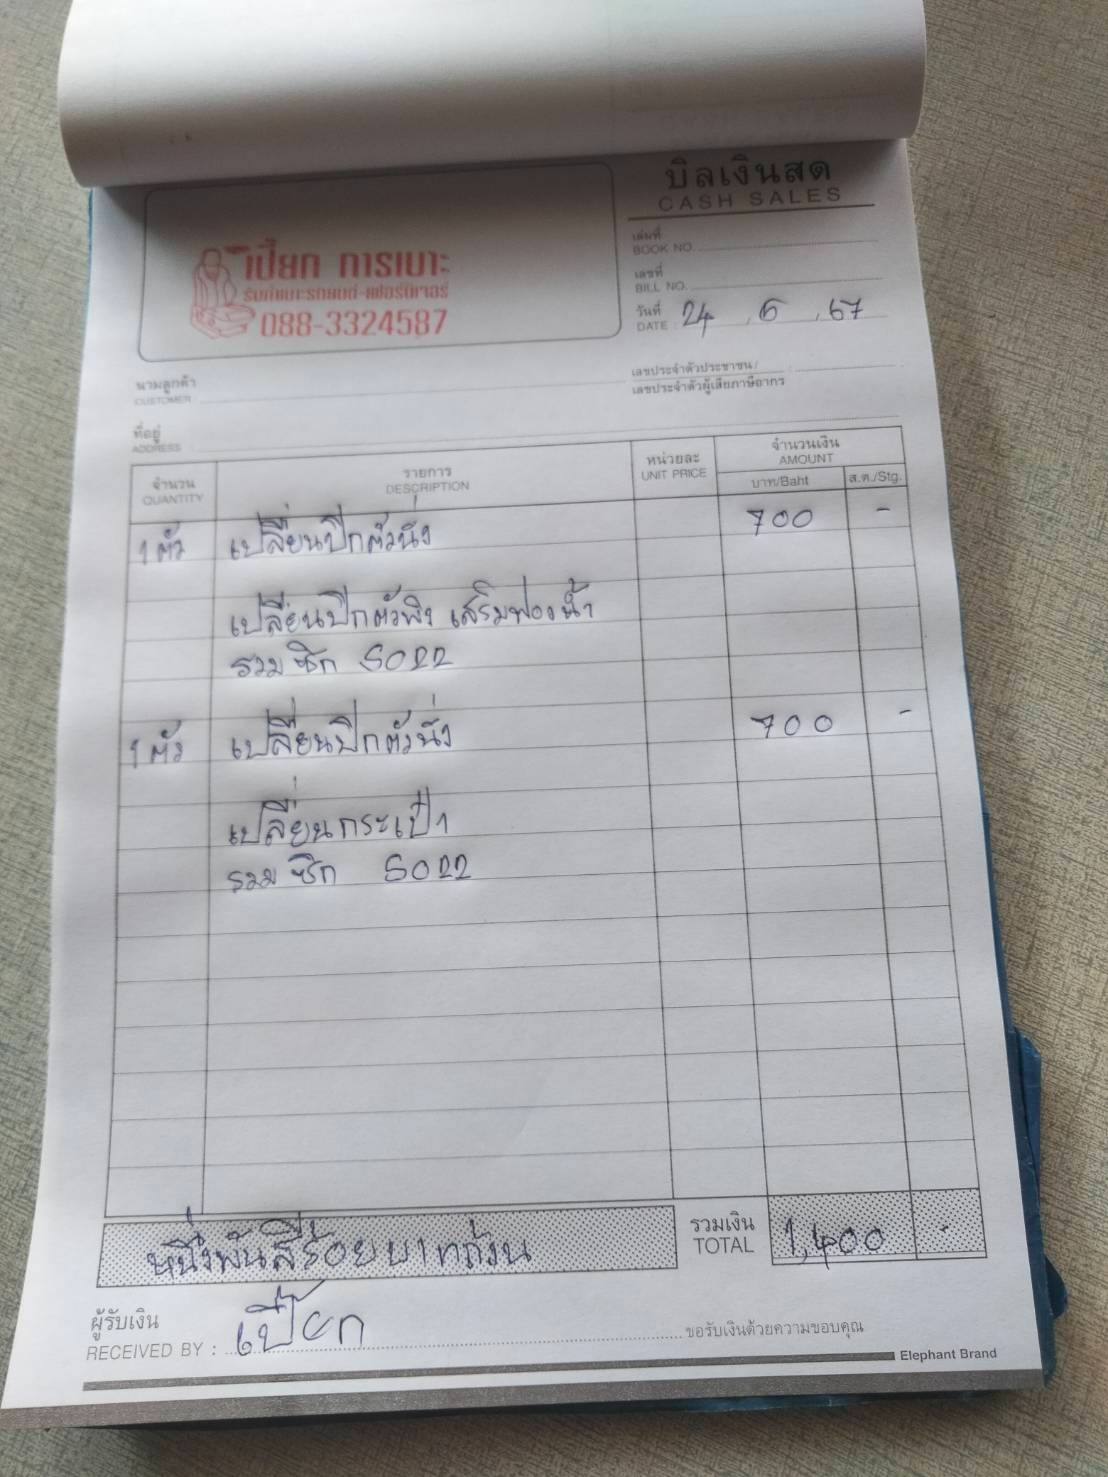 บิลเงินสด
CASH SALES
เปี๊ยก การเบาะ
รับทำเบาะรถยนต์-เฟอร์นิเจอร์
088-3324587
เล่มที่
BOOK NO.
เลขที่
BILL NO.
วันที่
DATE : 24 . 6 . 67
นามลูกค้า
CUSTOMER :
เลขประจำตัวประชาชน /
เลขประจำตัวผู้เสียภาษีอากร
ที่อยู่
ADDRESS
จำนวน
QUANTITY
รายการ
DESCRIPTION
หน่วยละ
UNIT PRICE
จำนวนเงิน
AMOUNT
บาท/Baht
ส.ต./Stg.
1 ตัว เปลี่ยนปีกตัวนั่ง 700 -
เปลี่ยนปีกตัวพิง เสริมฟองน้ำ
รวม ซิก 5022
1 ตัว เปลี่ยนปีกตัวนั่ง 700 -
เปลี่ยนกระเป๋า
รวม ซิก 5022
หนึ่งพันสี่ร้อยบาทถ้วน
รวมเงิน
TOTAL
1,400 -
ผู้รับเงิน
RECEIVED BY : เปี๊ยก
ขอรับเงินด้วยความขอบคุณ
Elephant Brand